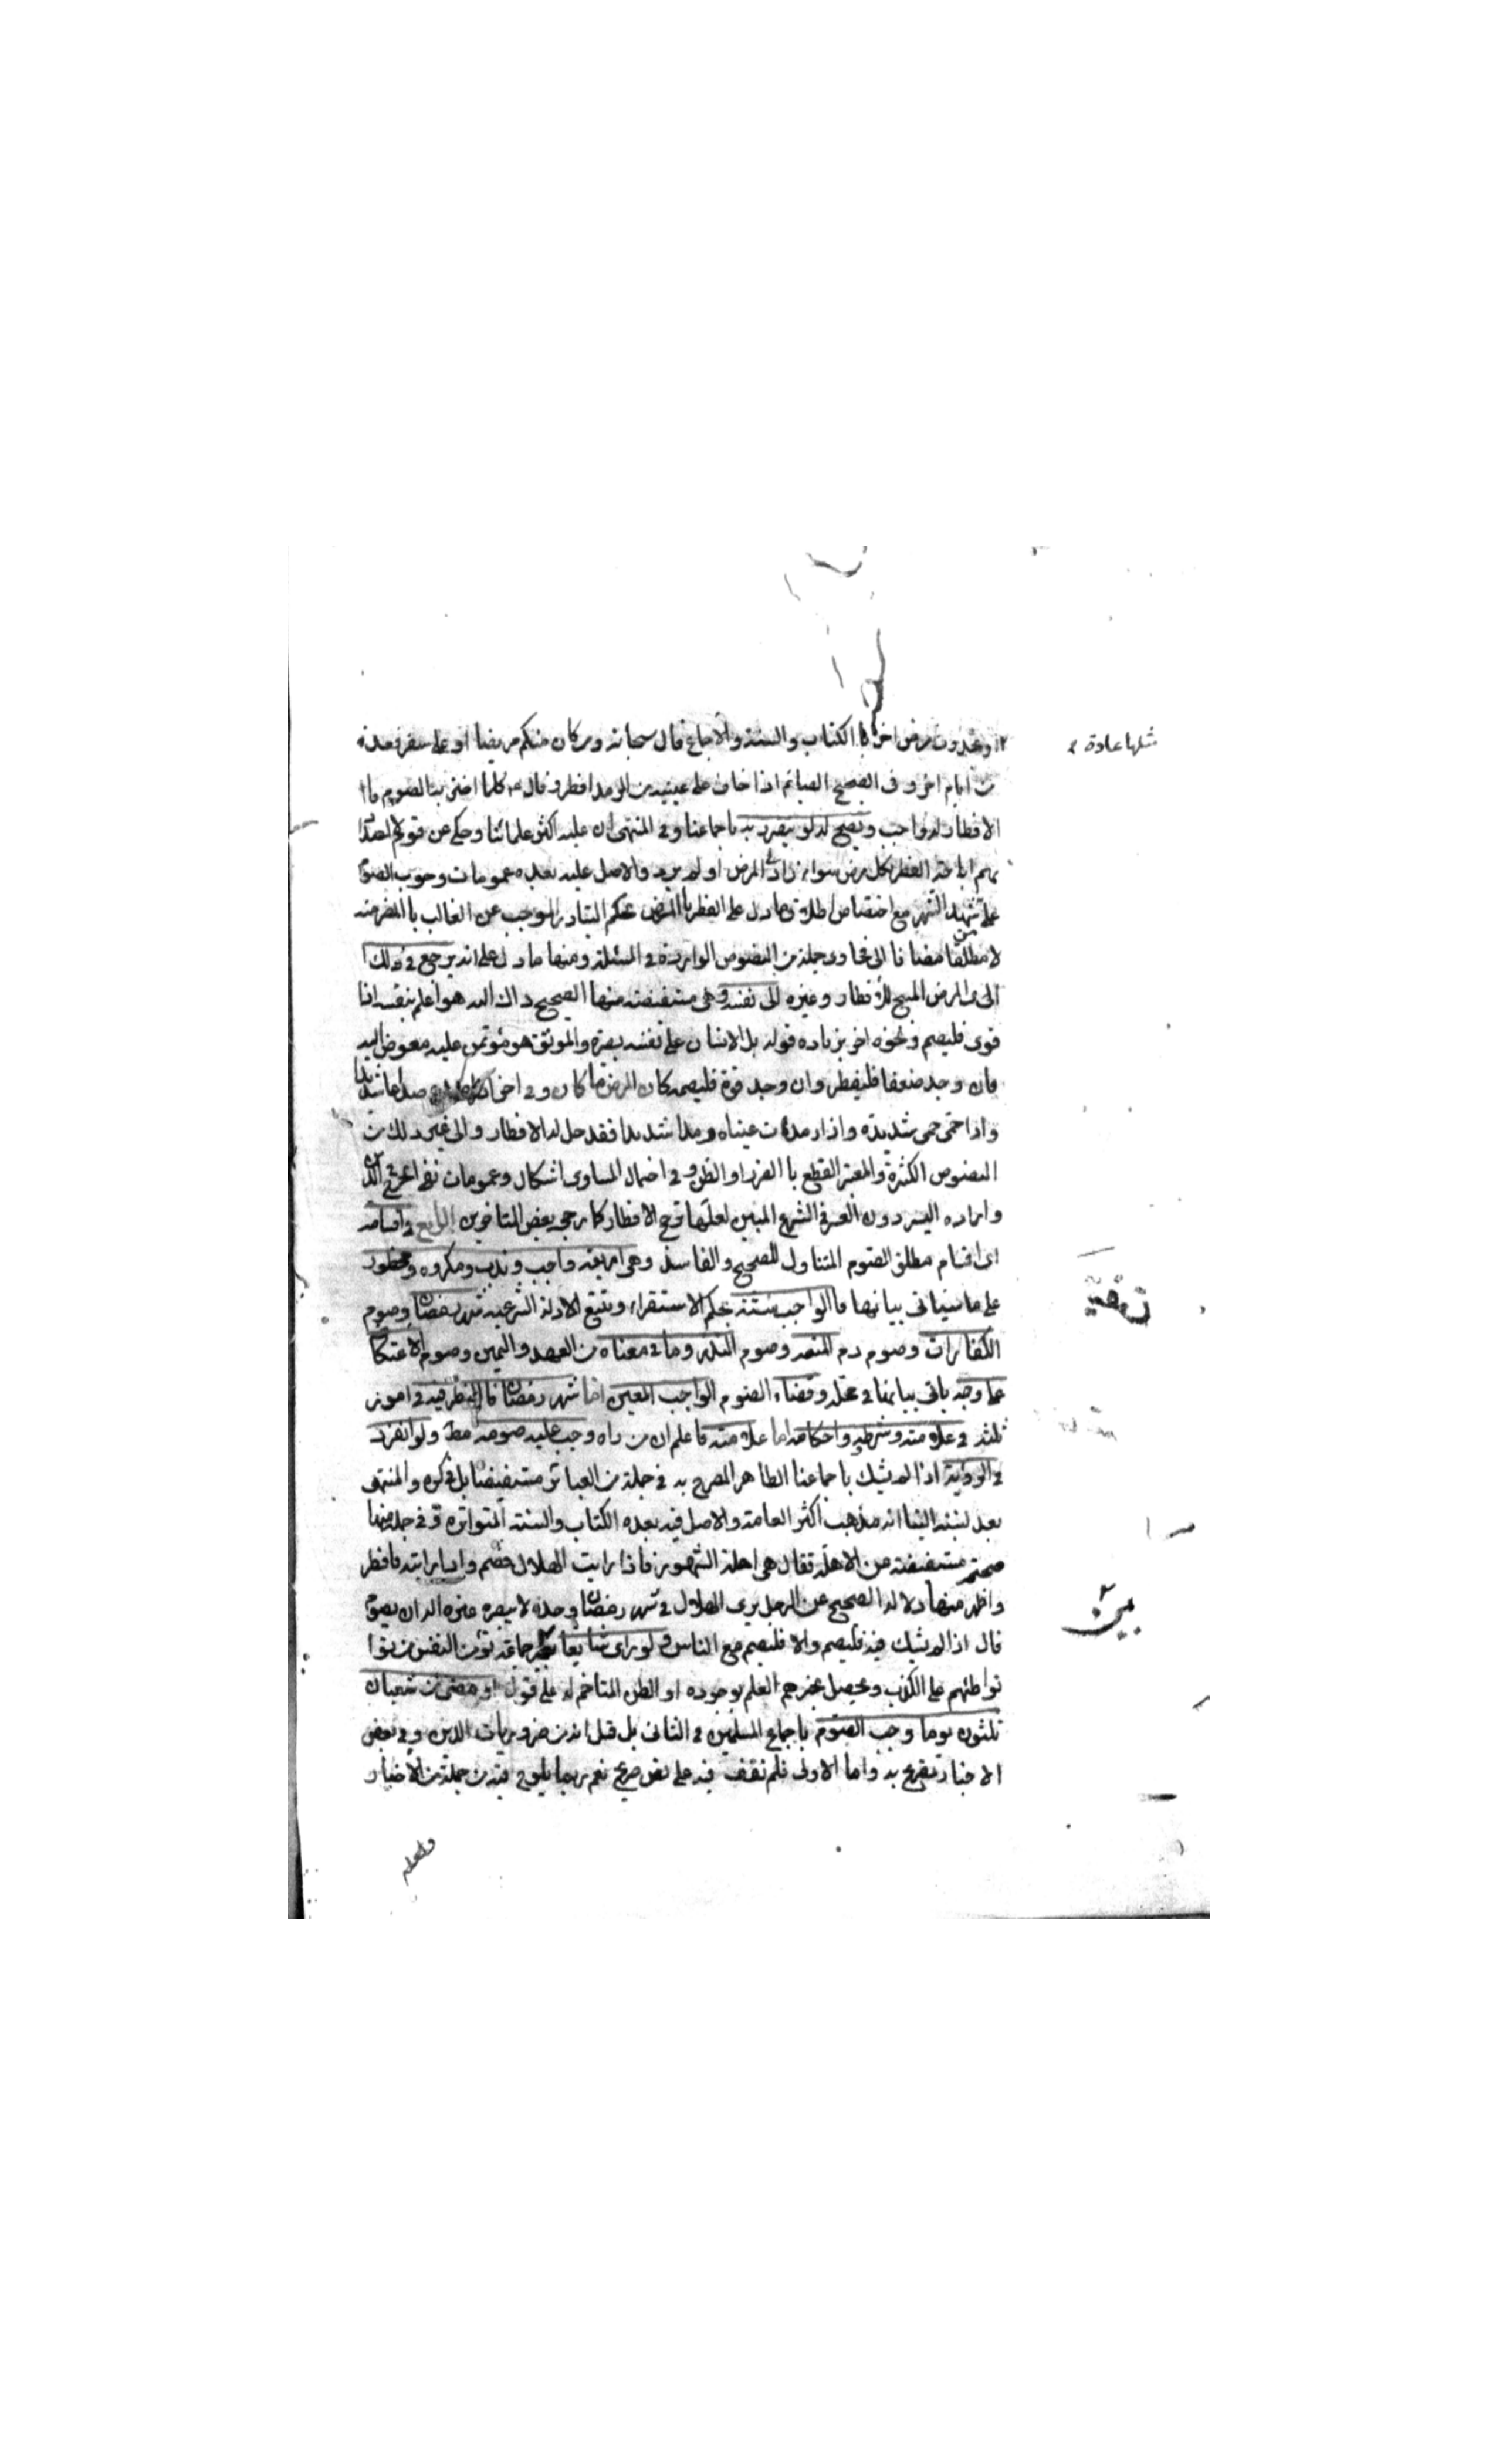 مثلها عادة
او حدوث مرض اخر بالكتاب والسنة والاجماع قال سبحانه ومن كان منكم مريضا او على سفر فعدة
من ايام اخر وفى الصحيح الصائم اذا خاف على عينيه من الرمد افطر وقال ع كلما اضر به الصوم فا
الافطار له واجب ويصح لو لم يتضرر به باجماعنا وفى المنتهى ان عليه اكثر علمائنا وحكى عن قوم لا
اباحة الفطر بكل مرض سواء زاد فى المرض او لم يزد والاصل عليه بعده عمومات وجوب الصو
على من شهد الشهر مع اختصاص اطلاق ما دل على الفطر بالمرض بحكم التبادر الموجب عن الغالب بالمضر منه
لا مطلقا مضافا الى فحاوى جملة من النصوص الواردة فى المسئلة ومنها ما دل على انه يرجع فى ذلك ا
الى المرض المبيح للافطار وغيره الى نفسه وهى مستفيضة منها الصحيح ذاك اليه هو اعلم بنفسه اذا
قوى فليصم ونحوه اخر بزياده قوله بل الانسان على نفسه بصيرة والموثق هو مؤتمن عليه مفوض اليه
فان وجد ضعفا فليفطر وان وجد قوة فليصمه كان المرض ما كان وفى اخر صداعا شديدا
واذا حمى حمى شديدة واذا رمدت عيناه رمدا شديدا فقد حل له الافطار والى غير ذلك من
النصوص الكثيرة والمعتبر القطع بالضرر او الظن وفى احتمال المساوى اشكال وعمومات نفى الحرج فى الد
وارادة اليسر دون العسر فى الشرع المبين لعلها ترجح الافطار كما رجحه بعض المتاخرين الرابع فى اقسامه
اى اقسام مطلق الصوم المتناول للصحيح والفاسد وهى اربعة واجب وندب ومكروه ومحظور
على ما سياتى بيانها فالواجب ستة بحكم الاستقراء وتتبع الادلة الشرعيه شهر رمضان وصوم
الكفارات وصوم دم المتعه وصوم النذر وما فى معناه من العهد واليمين وصوم الاعتكا
على وجه ياتى بيانها فى محله وقضاء الصوم الواجب المعين اما شهر رمضان فالنظر فيه فى امور
ثلثه فى علامته وشرطه واحكامه اما علامته فاعلم ان من راه وجب عليه صومه مط ولو انفرد
فى الرؤية اذا لم يشك باجماعنا الظاهر المصرح به فى جملة من العبائر مستفيضا بل فى كره والمنتهى
بعد نسبته الينا انه مذهب اكثر العامة والاصل فيه بعده الكتاب والسنة المتواترة ففى جملة منها
صحيحه مستفيضة عن الاهلة فقال هى اهلة الشهور فاذا رايت الهلال فصم واذا رايته فافطر
واظهر منها دلالة الصحيح عن الرجل يرى الهلال فى شهر رمضان وحده لا يبصره غيره اله ان يصو
قال اذا لم يشك فيه فليصم والا فليصم مع الناس ولو راى شايعا جماعة تؤمن النفس من توا
تواطئهم على الكذب ويحصل بخبرهم العلم بوجوده او الظن المتاخم له على قول او مضى من شعبان
ثلثون يوما وجب الصوم باجماع المسلمين فى الثانى بل قيل انه من ضروريات الدين وفى بعض
الاخبار تصريح به واما الاولى فلم نقف فيه على نص صريح نعم ربما يلوح فيه من جملة من الاخبار